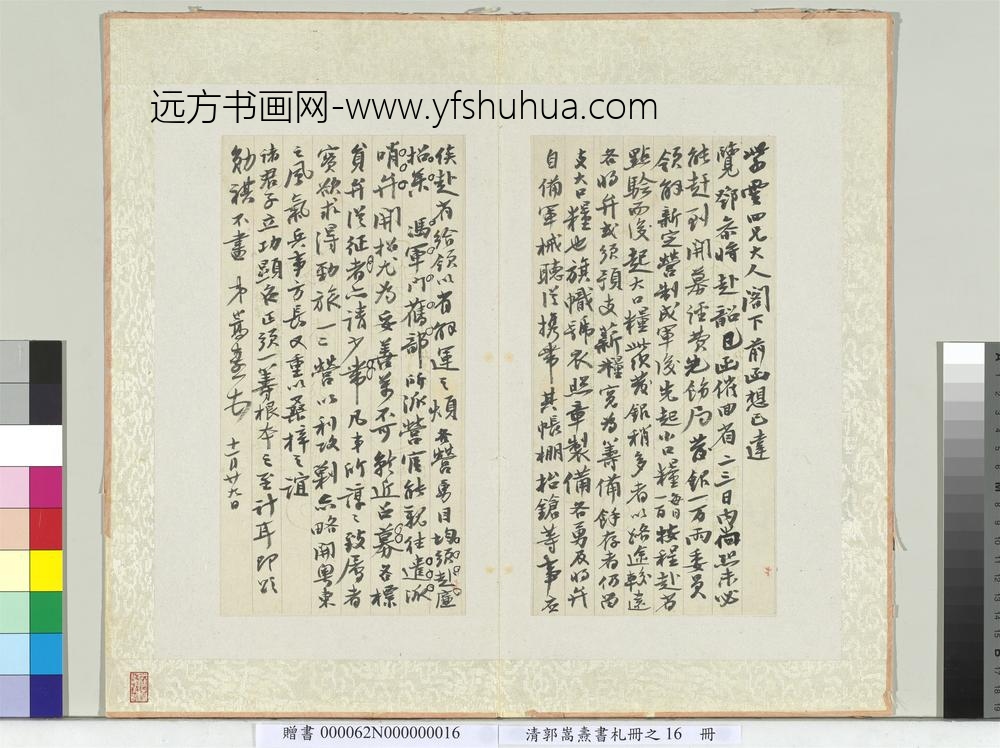 远方书画网-www.yfshuhua.com
雲四兄大人閣下前函想已達
覽鄧參將赴韶已函催回省二三日內尚恐未必
能趕到開募經費先飭局發銀一万兩委員
領解新定營制成軍後先起小口糧每日一百按程赴省
點驗而後起大口糧沿途發銀稍多者以路途較遠
各將弁或須預支薪糧寬為籌備餘存者仍留
支大口糧也旗幟號衣照章製備各勇及將弁
自備軍械聽從攜帶其帳棚抬鎗等事應
俟赴省給領以省解運之煩各營勇目均須赴
招集馮軍門舊部所派營官能親往遣派
哨弁開招尤為妥善萬不可就近召募各標
員弁從征者亦請少帶凡事所諄諄致屬者
實欲求得勁旅一二營以利攻剿亦略開粵東
之風氣兵事方長又重以桑梓之誼
諸君子立功顯名正須一籌根本之至計耳即頌
勛祺不盡 弟嵩燾 十一月廿九日
贈書 000062N000000016
清郭嵩燾書札冊之 16 冊